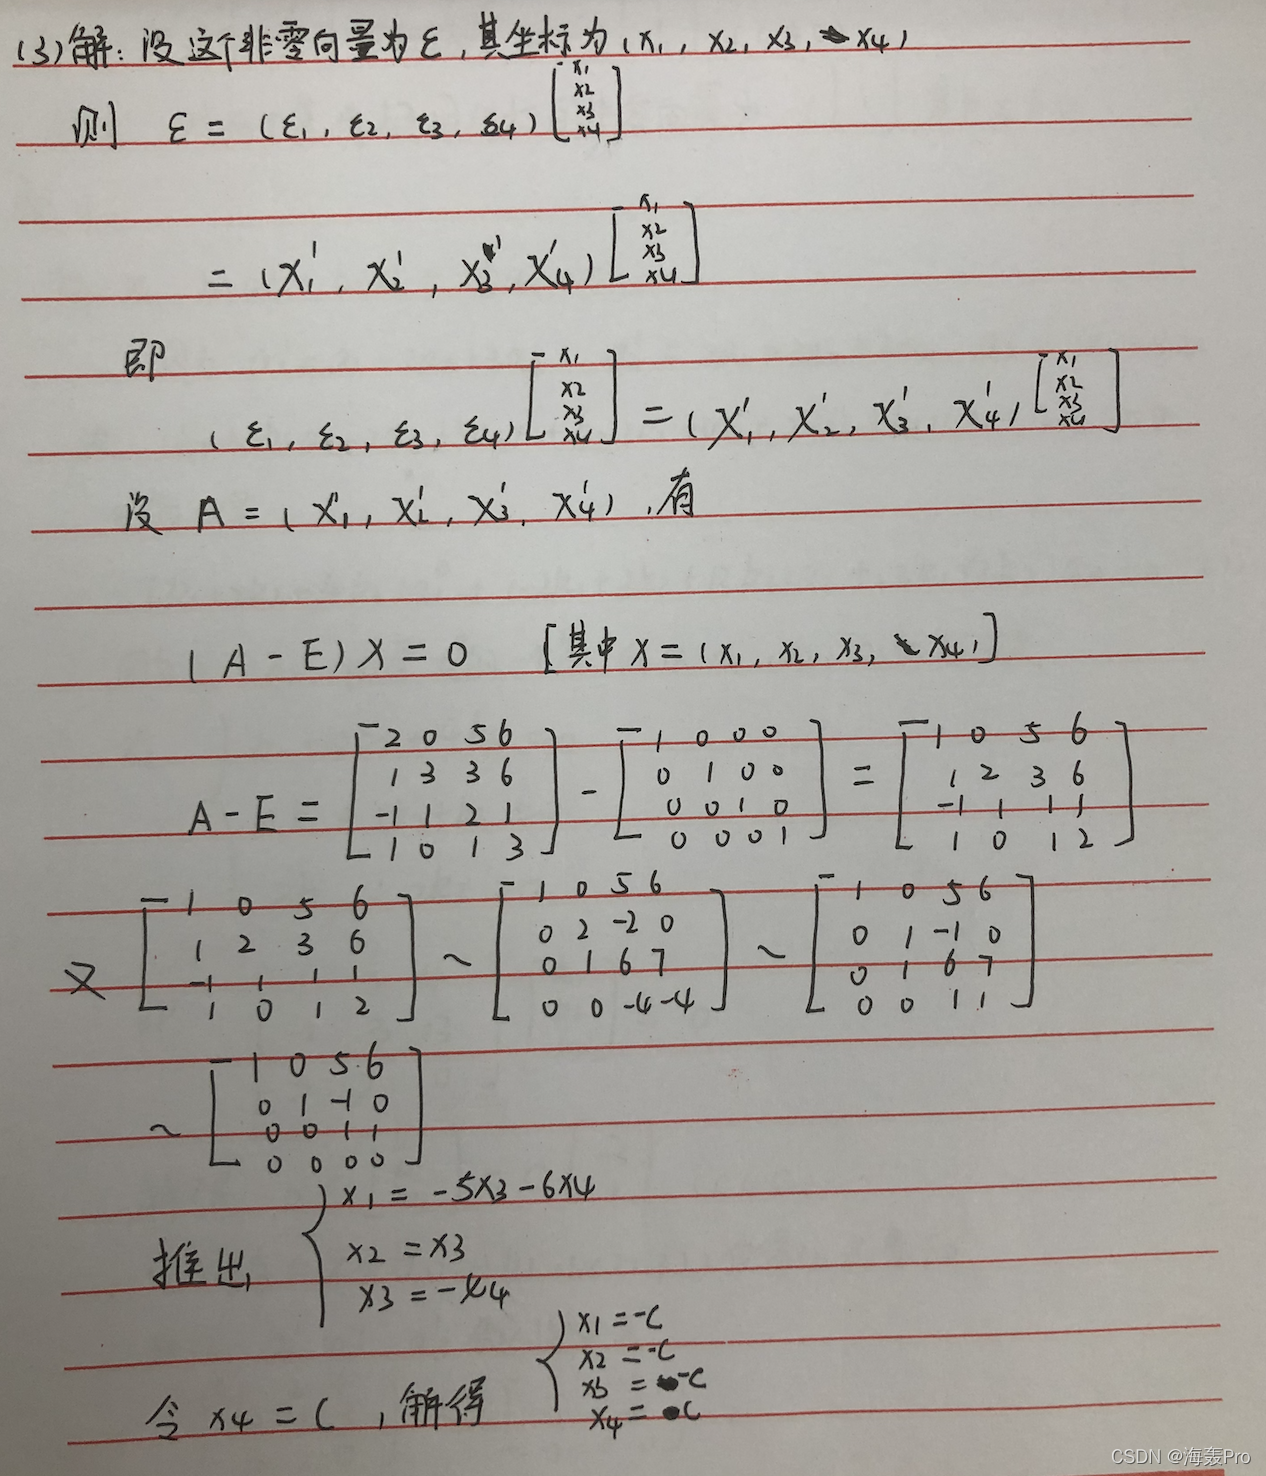 (3)解:设这个非零向量为ε,其坐标为(x1, x2, x3, x4)
则 ε = (ε1, ε2, ε3, ε4) [x1 x2 x3 x4]
= (X1', X2', X3', X4') [x1 x2 x3 x4]
即
(ε1, ε2, ε3, ε4) [x1 x2 x3 x4] = (X1', X2', X3', X4') [x1 x2 x3 x4]
设 A = (X1', X2', X3', X4'),有
(A - E) X = 0 [其中 X = (x1, x2, x3, x4)]
A - E = [2 0 5 6; 1 3 3 6; -1 1 2 1; 1 0 1 3] - [1 0 0 0; 0 1 0 0; 0 0 1 0; 0 0 0 1] = [1 0 5 6; 1 2 3 6; -1 1 1 1; 1 0 1 2]
又 [1 0 5 6; 1 2 3 6; -1 1 1 1; 1 0 1 2] ~ [1 0 5 6; 0 2 -2 0; 0 1 6 7; 0 0 -4 -4] ~ [1 0 5 6; 0 1 -1 0; 0 1 6 7; 0 0 1 1]
~ [1 0 5 6; 0 1 -1 0; 0 0 1 1; 0 0 0 0]
推出 { x1 = -5x3 - 6x4
x2 = x3
x3 = -x4
令 x4 = C ,解得 { x1 = -C
x2 = -C
x3 = -C
x4 = C
CSDN @海轰Pro